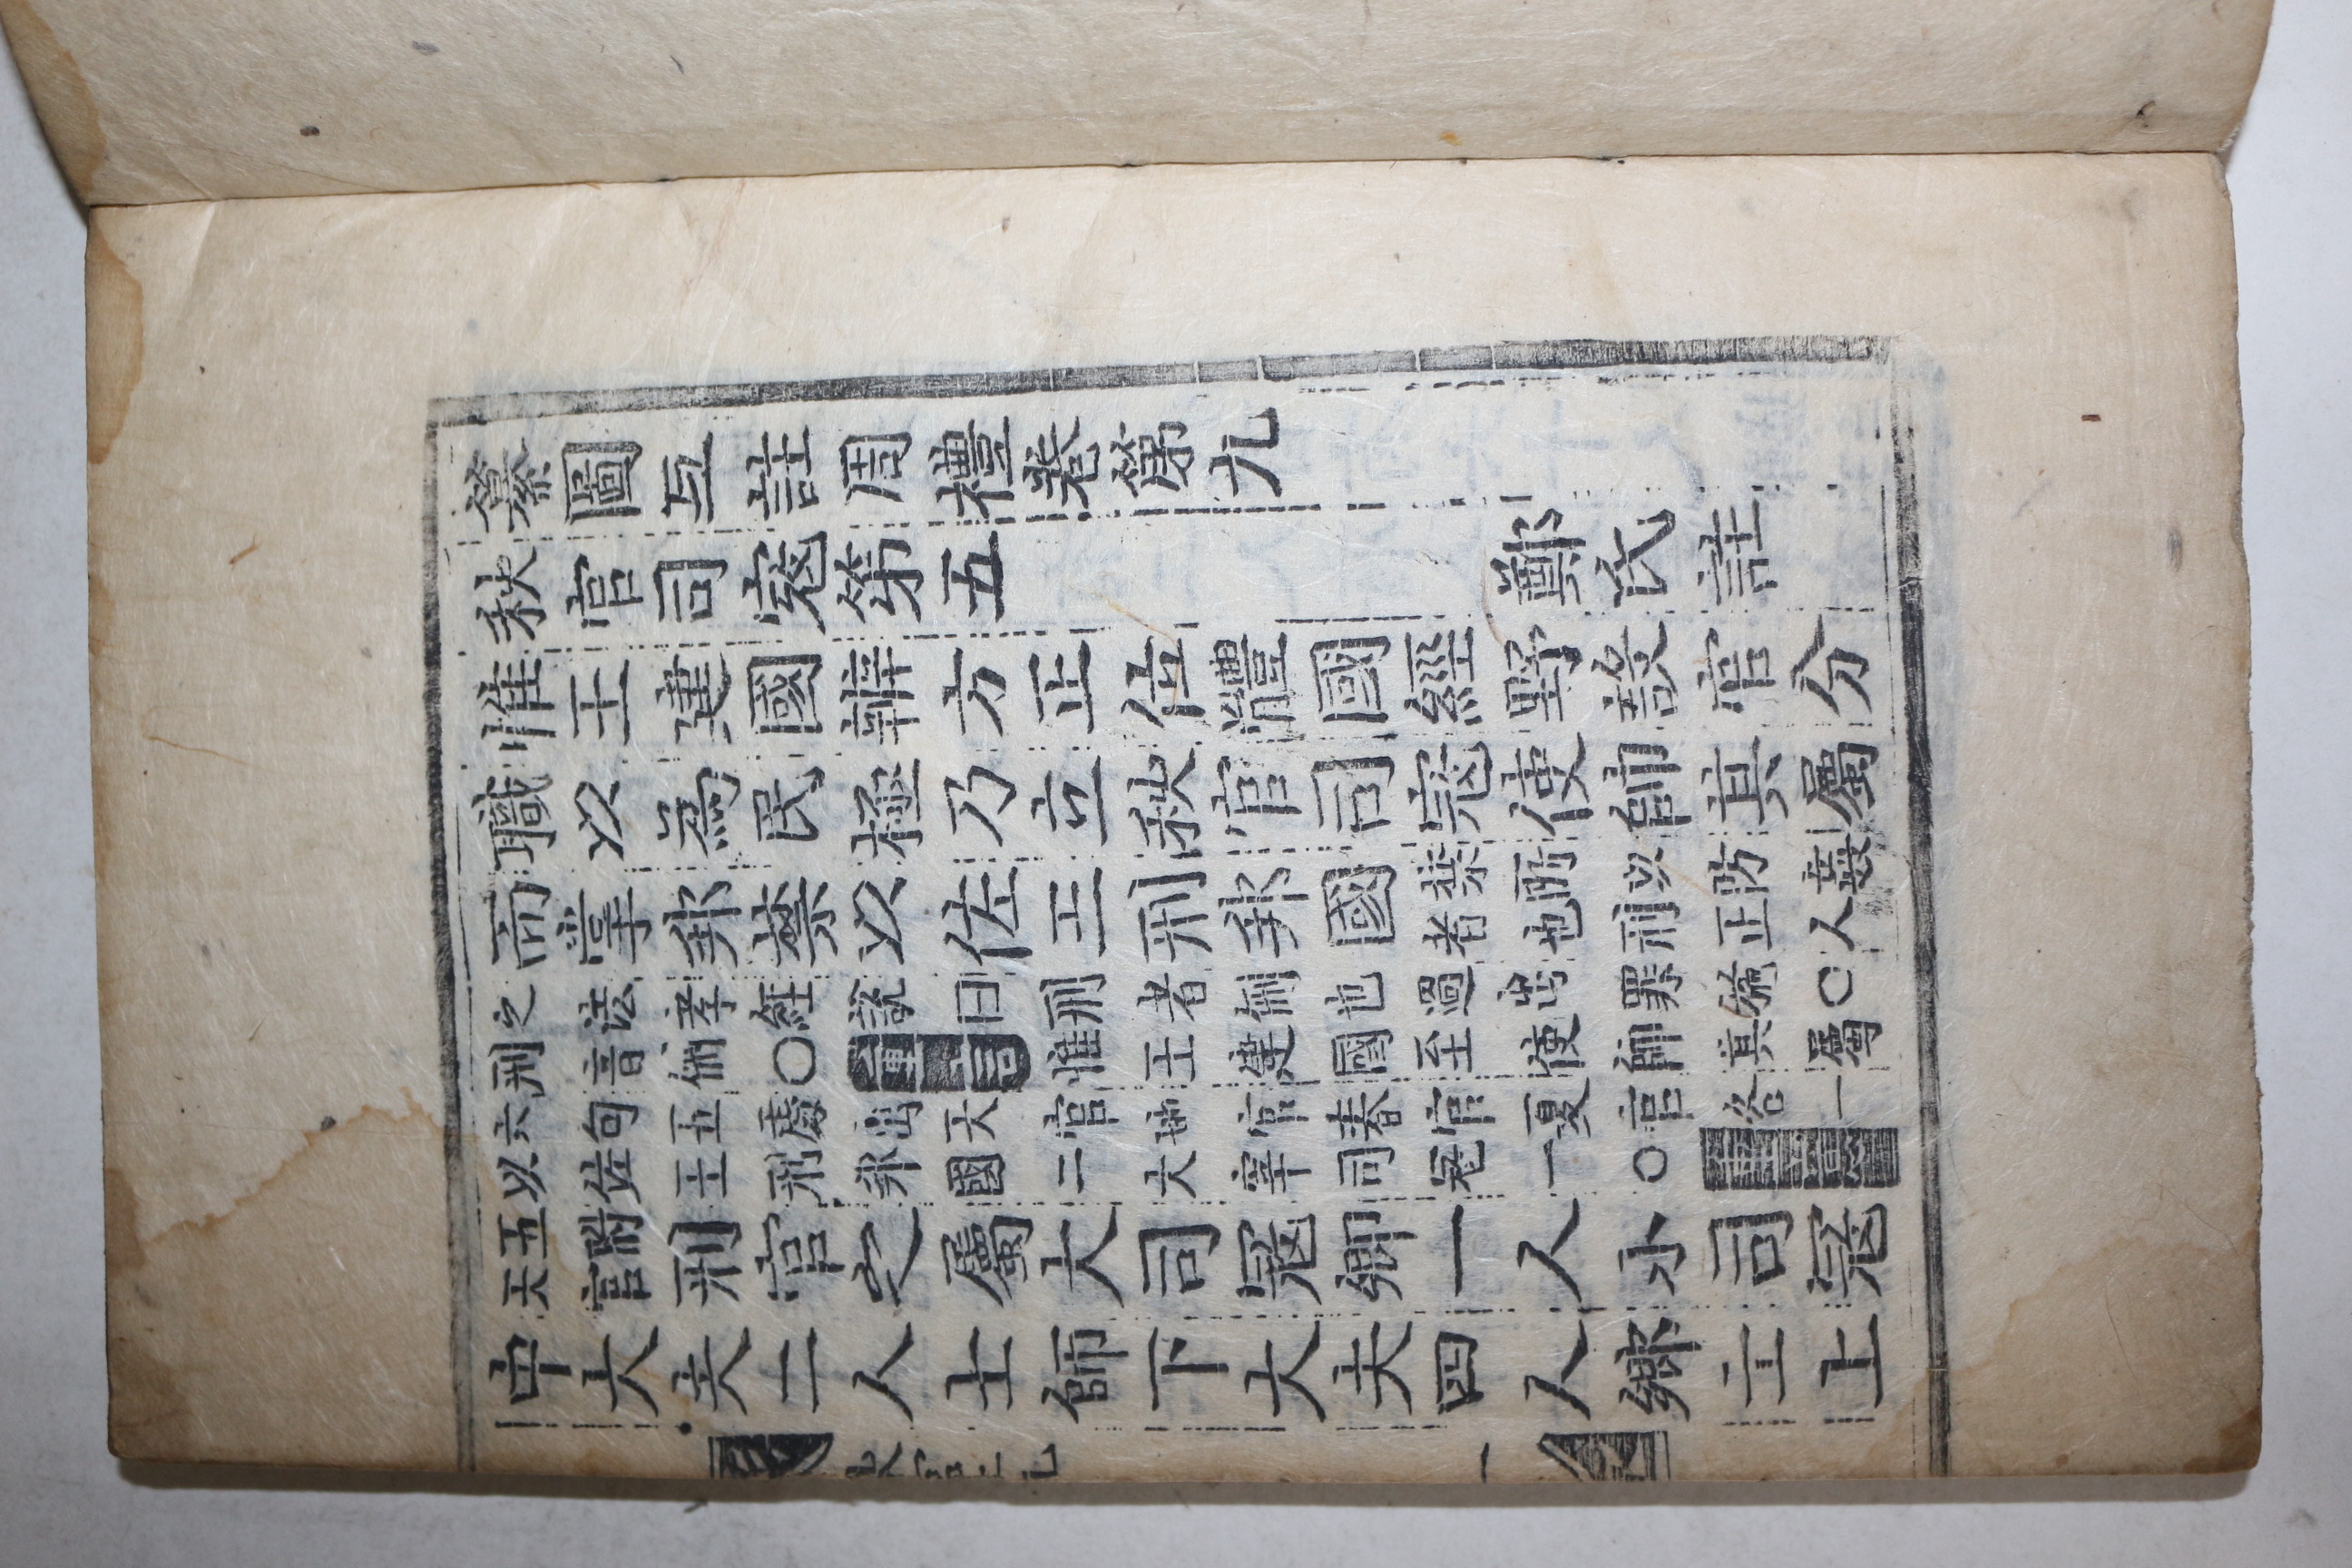 纂圖互註周禮卷第九
秋官司寇第五　鄭氏註
惟王建國辨方正位體國經野設官分
職以為民極乃立秋官司寇使帥其屬
而掌邦禁以佐王刑邦國
禁所以防姦
者也刑正人
之法孝經說曰刑者侀也過出罪施○
刑音侀○重言惟王建國至使帥其屬
六句五處出天官地官春官夏官各一
以佐王刑邦國二大宰司冦一○
五附
天官
刑官之屬大司冦卿一人小司冦
中大夫二人士師下大夫四人鄉士上
一